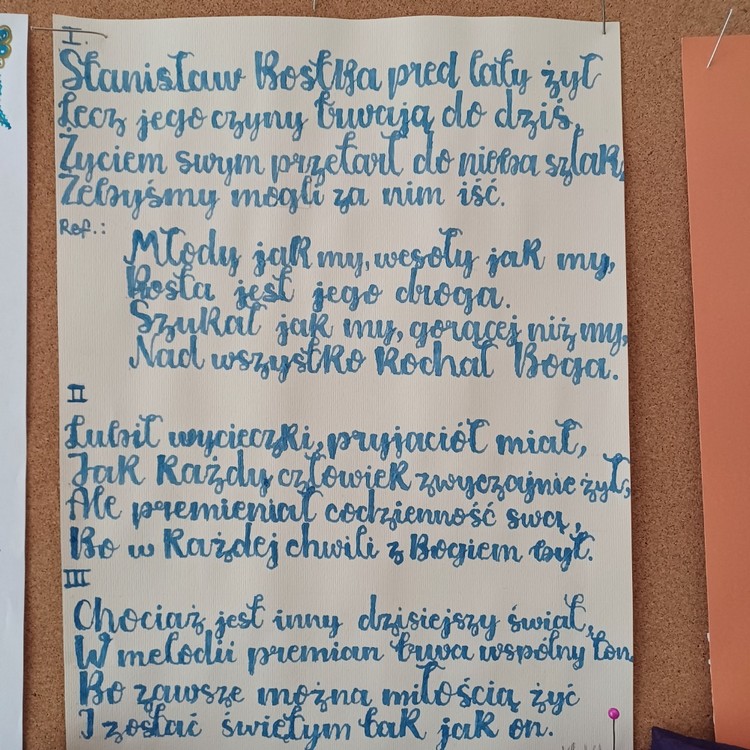 I.
Stanisław Kostka pred laty żył
Lecz jego czyny trwają do dziś,
Życiem swym przetarł do nieba szlak,
Żebyśmy mogli za nim iść.
Ref.:
Młody jak my, wesoły jak my,
Prosta jest jego droga.
Szukał jak my, goręcej niż my,
Nad wszystko kochał Boga.
II
Lubił wycieczki, pryjaciół miał,
Jak każdy człowiek zwyczajnie żył,
Ale premieniał codzienność swą,
Bo w każdej chwili z Bogiem był.
III
Chociaż jest inny dzisiejszy świat,
W melodii premian trwa wspólny ton.
Bo zawsze można miłością żyć
I zostać świętym tak jak on.